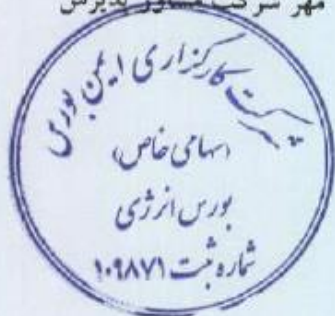 مهر شرکت مشاور پذیرش
شرکت کارگزاری ایمن بورس
(سهامی خاص)
بورس انرژی
شماره ثبت ۱۰۹۸۷۱